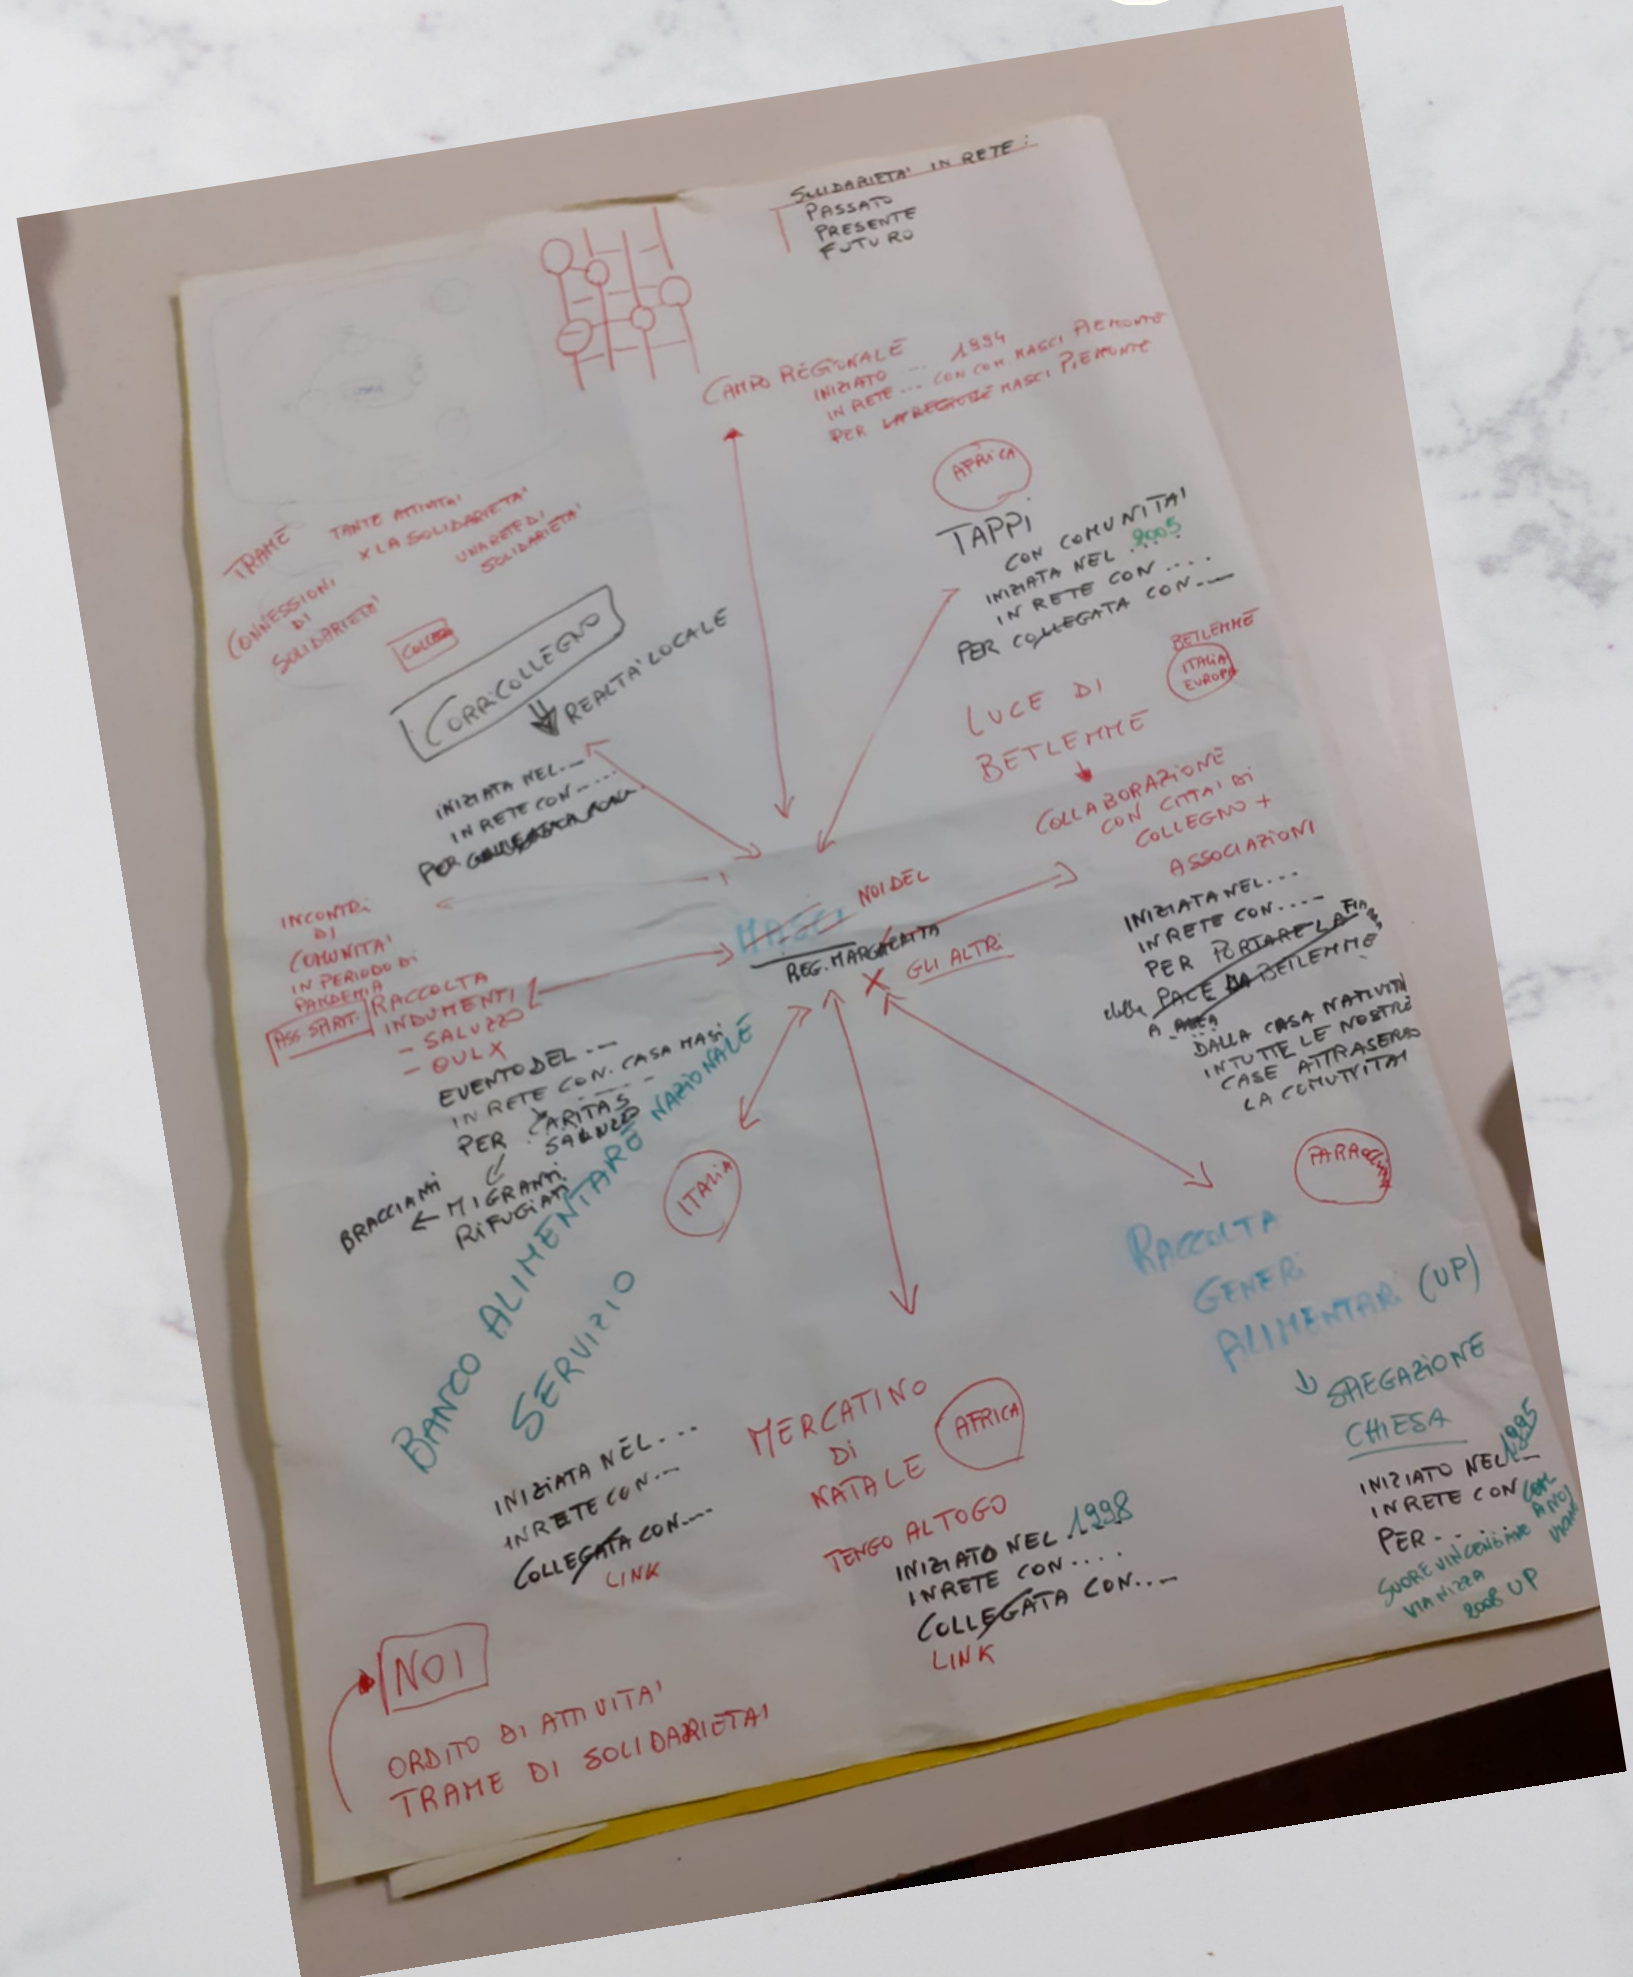 SOLIDARIETA' IN RETE:
PASSATO
PRESENTE
FUTURO
CAMPO REGIONALE
INIZIATO ... 1994
IN RETE ... CON MASCI PIEMONTE
PER LA REGIONE MASCI PIEMONTE
AFRICA
TAPPI
CON COMUNITA'
INIZIATA NEL 2005
IN RETE CON ....
PER COLLEGATA CON ----
TRAME
TANTE ATTIVITA'
X LA SOLIDARIETA'
UNA RETE DI
SOLIDARIETA'
CONNESSIONI
DI
SOLIDARIETA'
CORRICOLLEGNO
REALTA' LOCALE
INIZIATA NEL ----
IN RETE CON ----
PER
BETLEMME
ITALIA
EUROPA
LUCE DI
BETLEMME
COLLABORAZIONE
CON CITTA' DI
COLLEGNO +
ASSOCIAZIONI
INIZIATA NEL ...
IN RETE CON ....
PER PORTARE LA
della PACE DA BETLEMME
A
DALLA CASA NATIVITA'
IN TUTTE LE NOSTRE
CASE ATTRASERSO
LA COMUNITA'
INCONTRI
DI
COMUNITA'
IN PERIODO DI
PANDEMIA
ASS. SPATT.
RACCOLTA
INDUMENTI
- SALUZZO
- OULX
EVENTO DEL ---
IN RETE CON. CASA MASI
PER CARITAS
SALUZZO
BRACCIANTI ← MIGRANTI
RIFUGIATI
MASCI NOI DEL
REG. MARGHERITA
X GLI ALTRI
ITALIA
BANCO ALIMENTARE NAZIONALE
SERVIZIO
INIZIATA NEL ...
IN RETE CON ...
COLLEGATA CON....
LINK
MERCATINO
DI
NATALE
AFRICA
TENGO AL TOGO
INIZIATO NEL 1998
IN RETE CON ....
COLLEGATA CON....
LINK
RACCOLTA
GENERI
ALIMENTARI (UP)
SPIEGAZIONE
CHIESA
INIZIATO NEL 1995
IN RETE CON
PER ....
SUORE VINCENZIANE
VIA NIZZA
2008 UP
NOI
ORDITO DI ATTIVITA'
TRAME DI SOLIDARIETA'